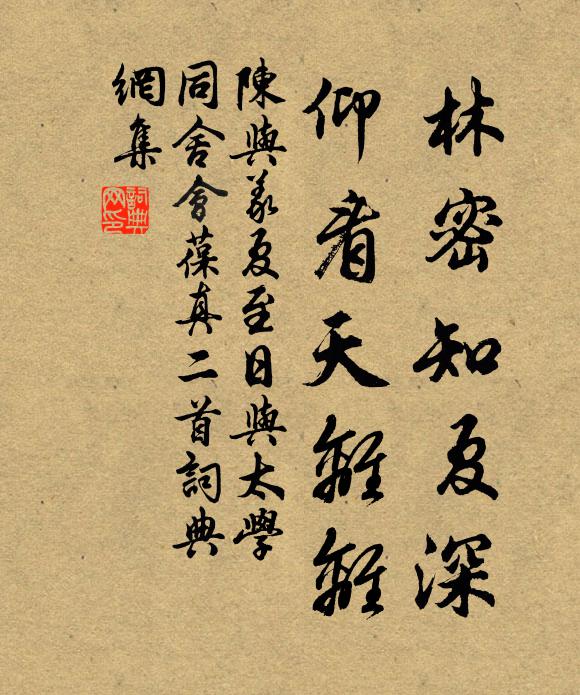 林密知夏深
仰看天離離
陳與義夏至日與太學
同舍會葆真二首詞典
網集
詞典
网印